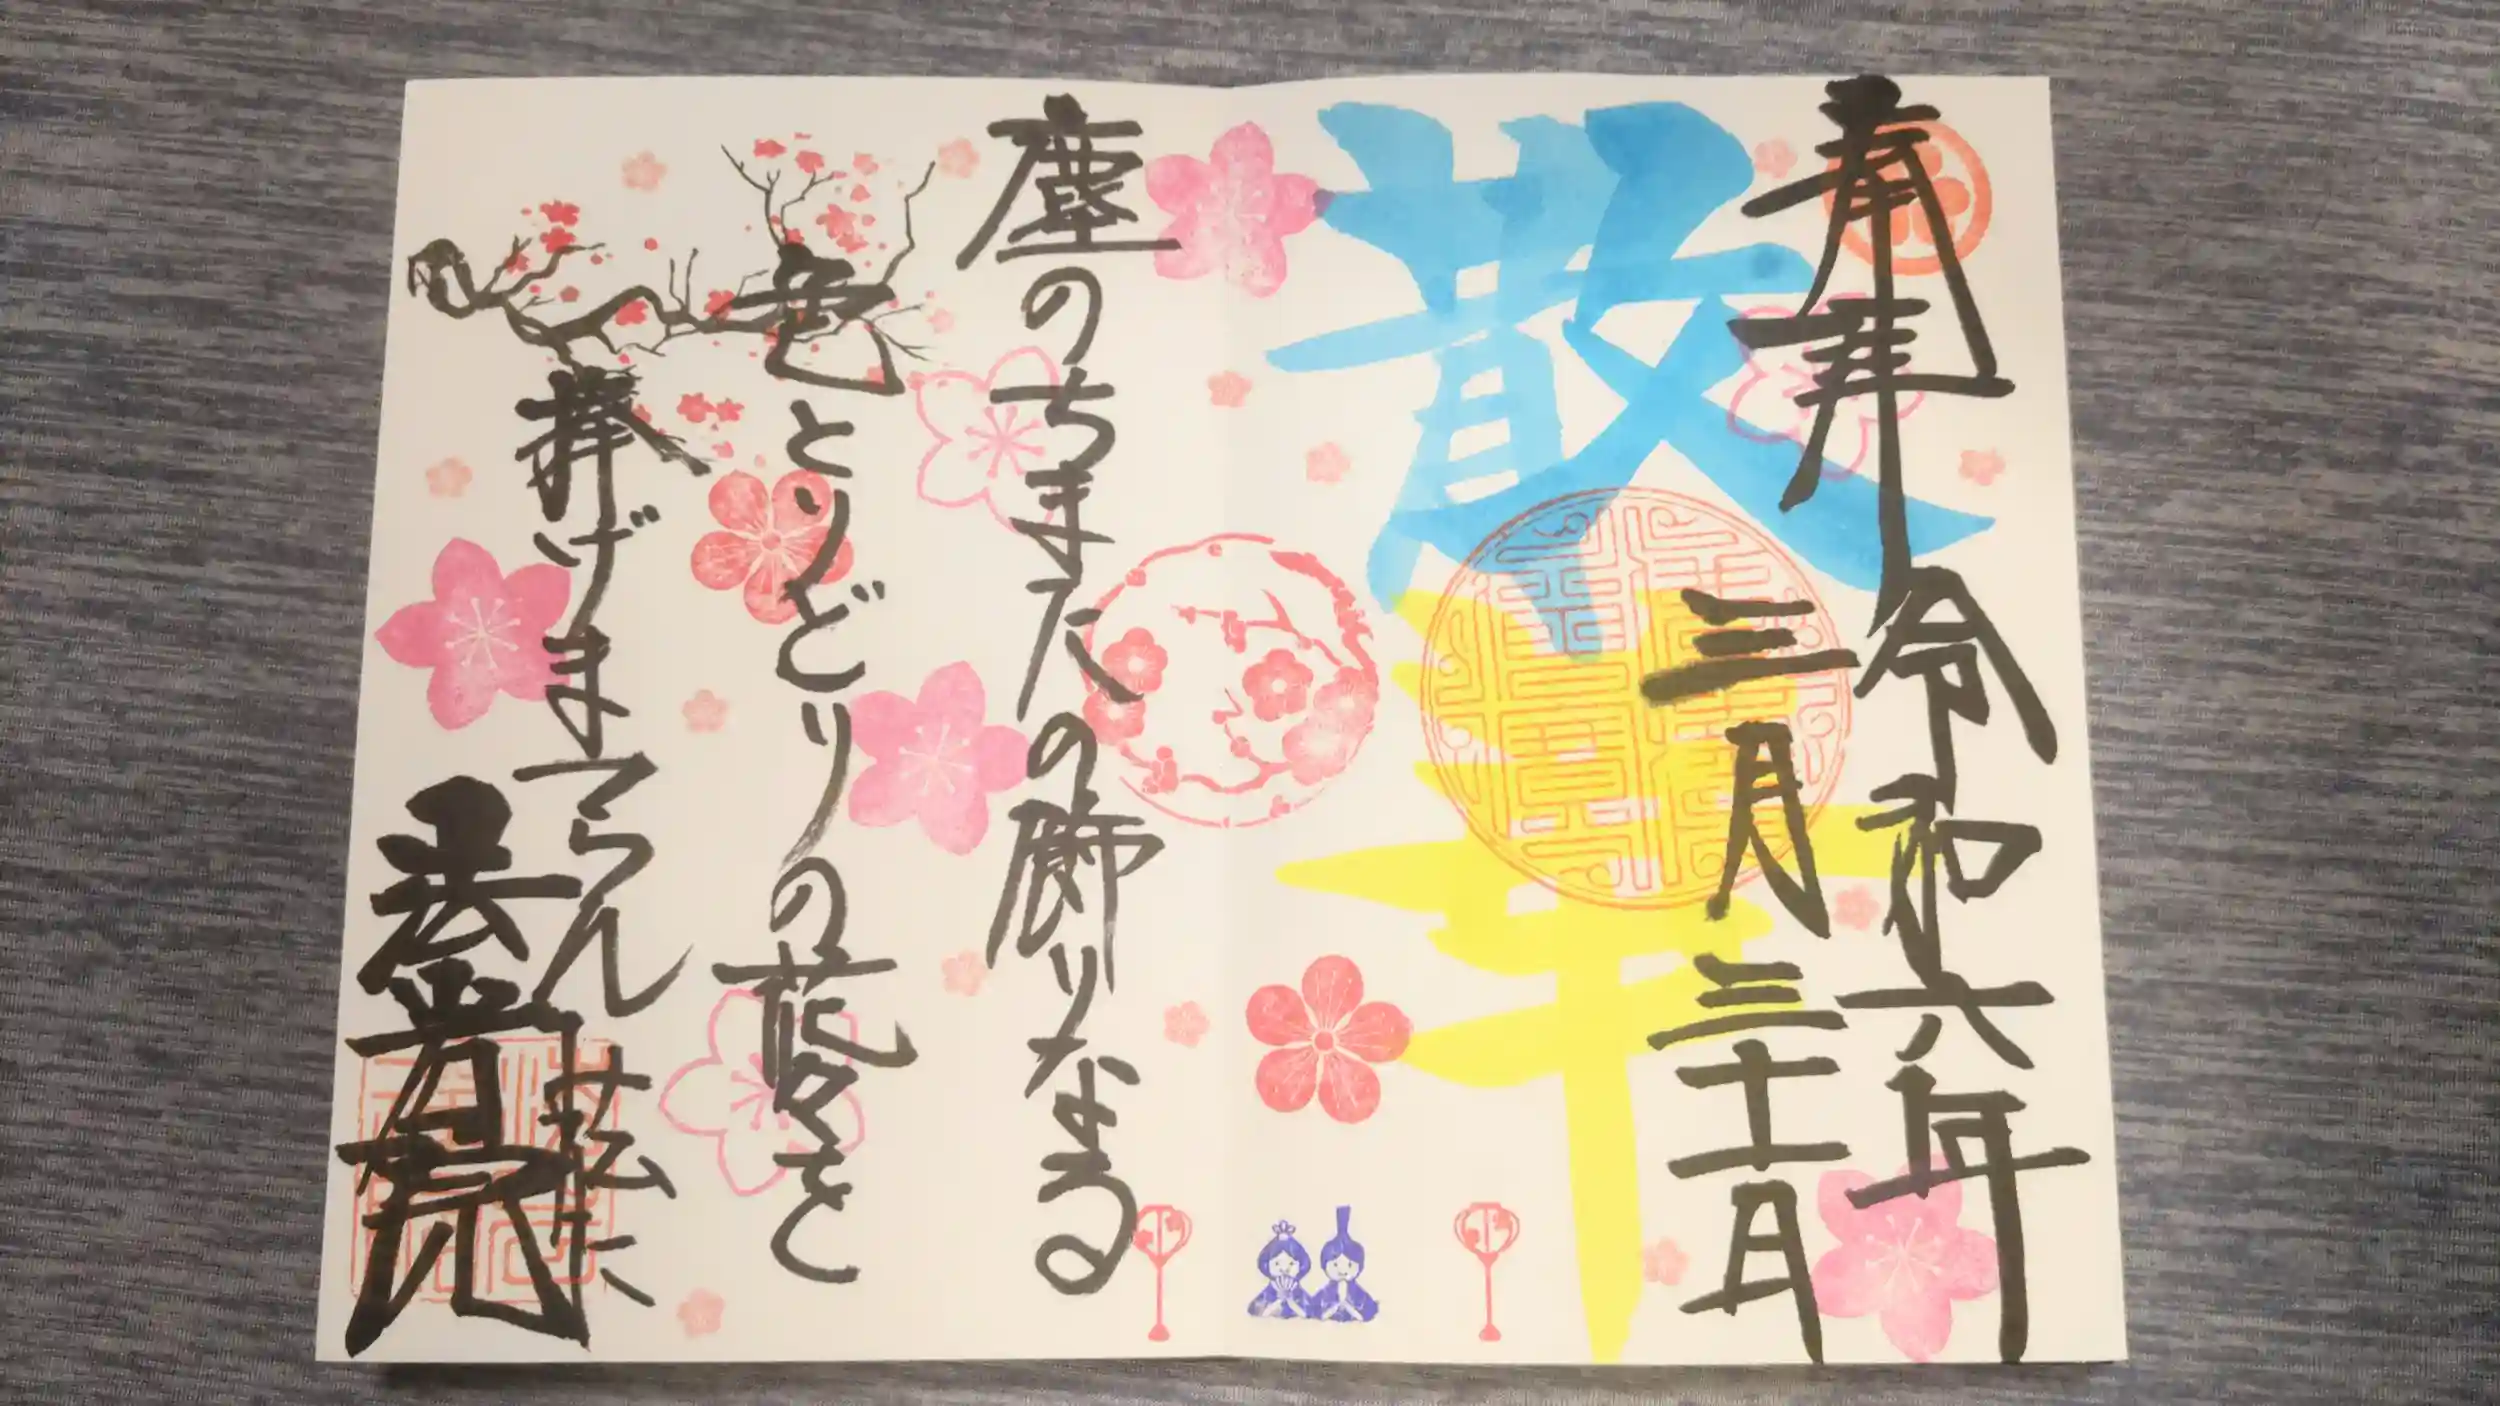 奉拝
令和六年
三月三十一日
散華
塵のちまたの飾りなる
色とりどりの花々を
捧げまつらん茲に